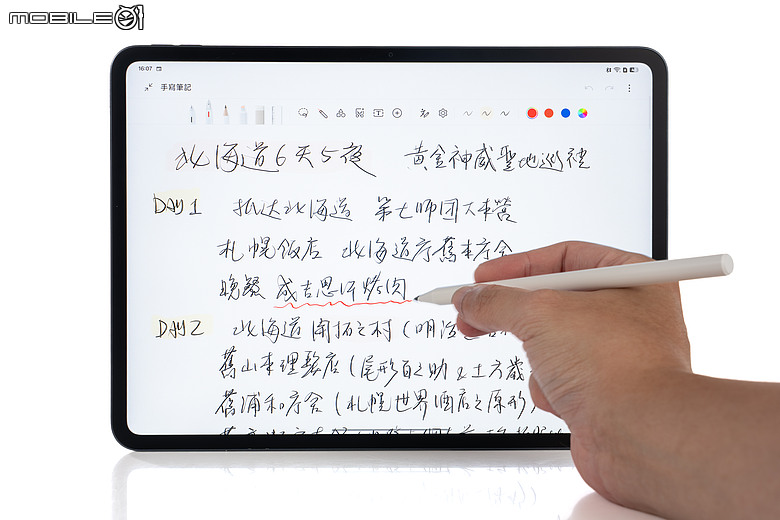 MOBILE01
16:07
手寫筆記
北海道6天5夜 黃金神威聖地巡禮
DAY1 抵达北海道 第七師団大本營
札幌飯店 北海道庁舊本庁舍
晚餐 成吉思汗烤肉
DAY2 北海道開拓之村(明治
舊山本理髮店(尾形百之助 & 土方歲
舊浦和庁舍(札幌世界酒店之原形)